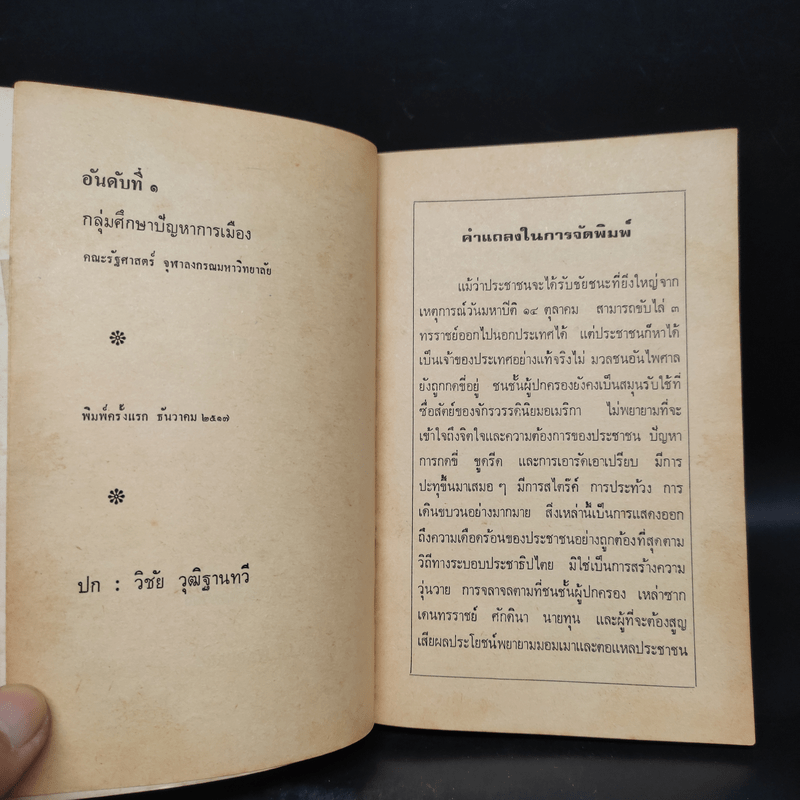 อันดับที่ ๑
กลุ่มศึกษาปัญหาการเมือง
คณะรัฐศาสตร์ จุฬาลงกรณมหาวิทยาลัย
พิมพ์ครั้งแรก ธันวาคม ๒๕๑๗
ปก : วิชัย วุฒิฐานทวี
คำแถลงในการจัดพิมพ์
แม้ว่าประชาชนจะได้รับชัยชนะที่ยิ่งใหญ่จาก
เหตุการณ์วันมหาปิติ ๑๔ ตุลาคม สามารถขับไล่ ๓
ทรราชย์ออกไปนอกประเทศได้ แต่ประชาชนก็หาได้
เป็นเจ้าของประเทศอย่างแท้จริงไม่ มวลชนอันไพศาล
ยังถูกกดขี่อยู่ ชนชั้นผู้ปกครองยังคงเป็นสมุนรับใช้ที่
ซื่อสัตย์ของจักรวรรดินิยมอเมริกา ไม่พยายามที่จะ
เข้าใจถึงจิตใจและความต้องการของประชาชน ปัญหา
การกดขี่ ขูดรีด และการเอารัดเอาเปรียบ มีการ
ปะทุขึ้นมาเสมอ ๆ มีการสไตร๊ค์ การประท้วง การ
เดินขบวนอย่างมากมาย สิ่งเหล่านี้เป็นการแสดงออก
ถึงความเดือดร้อนของประชาชนอย่างถูกต้องที่สุดตาม
วิถีทางระบอบประชาธิปไตย มิใช่เป็นการสร้างความ
วุ่นวาย การจลาจลตามที่ชนชั้นผู้ปกครอง เหล่าซาก
เดนทรราชย์ ศักดินา นายทุน และผู้ที่จะต้องสูญ
เสียผลประโยชน์พยายามมอมเมาและตอแหลประชาชน